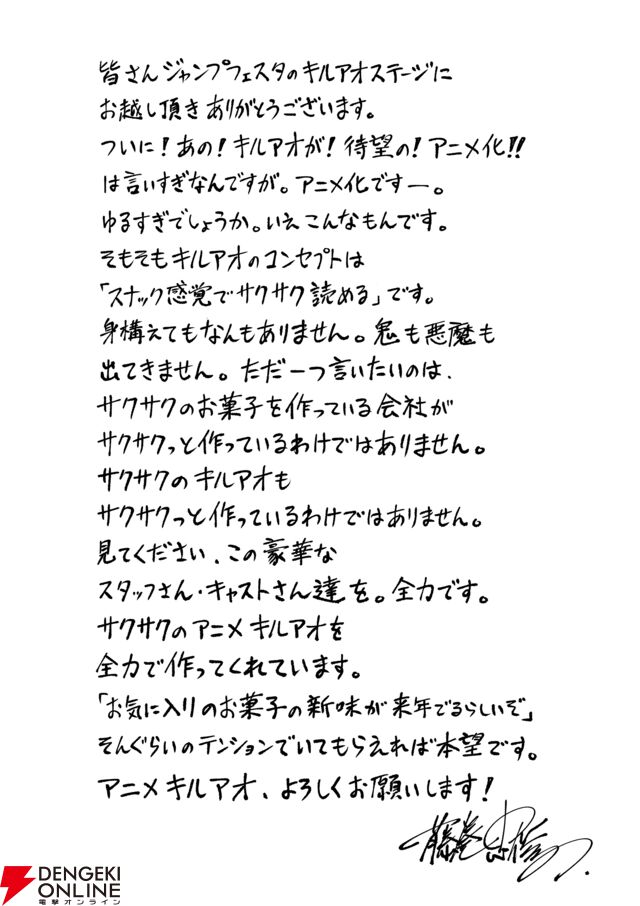 皆さんジャンプフェスタのキルアオステージに
お越し頂きありがとうございます。
ついに！あの！キルアオが！待望の！アニメ化!!
は言いすぎなんですが。アニメ化ですー。
ゆるすぎでしょうか。いえこんなもんです。
そもそもキルアオのコンセプトは
「スナック感覚でサクサク読める」です。
身構えてもなんもありません。鬼も悪魔も
出てきません。ただ一つ言いたいのは、
サクサクのお菓子を作っている会社が
サクサクっと作っているわけではありません。
サクサクのキルアオも
サクサクっと作っているわけではありません。
見てください、この豪華な
スタッフさん・キャストさん達を。全力です。
サクサクのアニメキルアオを
全力で作ってくれています。
「お気に入りのお菓子の新味が来年でるらしいぞ」
そんぐらいのテンションでいてもらえれば本望です。
アニメキルアオ、よろしくお願いします！
藤巻忠俊
DENGEKI
ONLINE
電撃オンライン